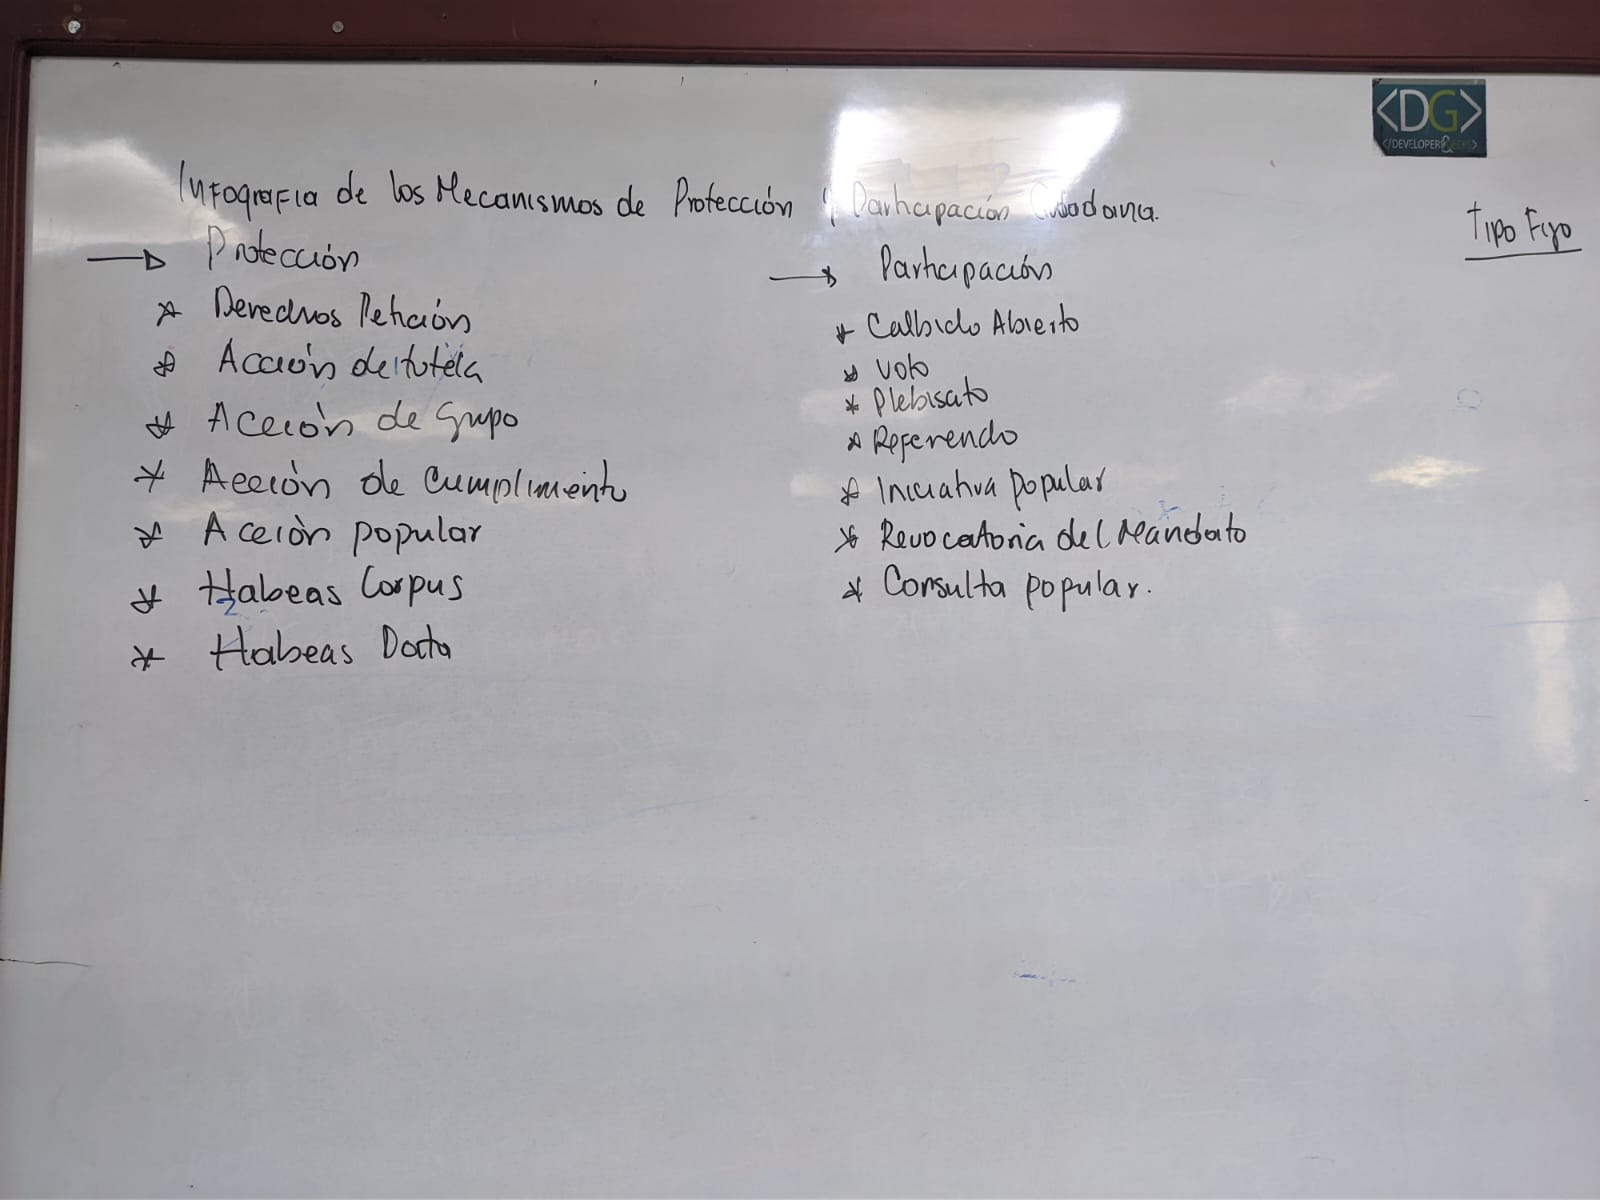 Infografia de los Mecanismos de Protección y Participación Ciudadana.
Tipo Fijo
Protección
* Derechos Petición
* Acción de tutela
* Acción de Grupo
* Acción de Cumplimiento
* Acción popular
* Habeas Corpus
* Habeas Data
Participación
* Calbido Abierto
* Voto
* Plebiscito
* Referendo
* Iniciativa popular
* Revocatoria del Mandato
* Consulta popular.
<DG>
</DEVELOPER&